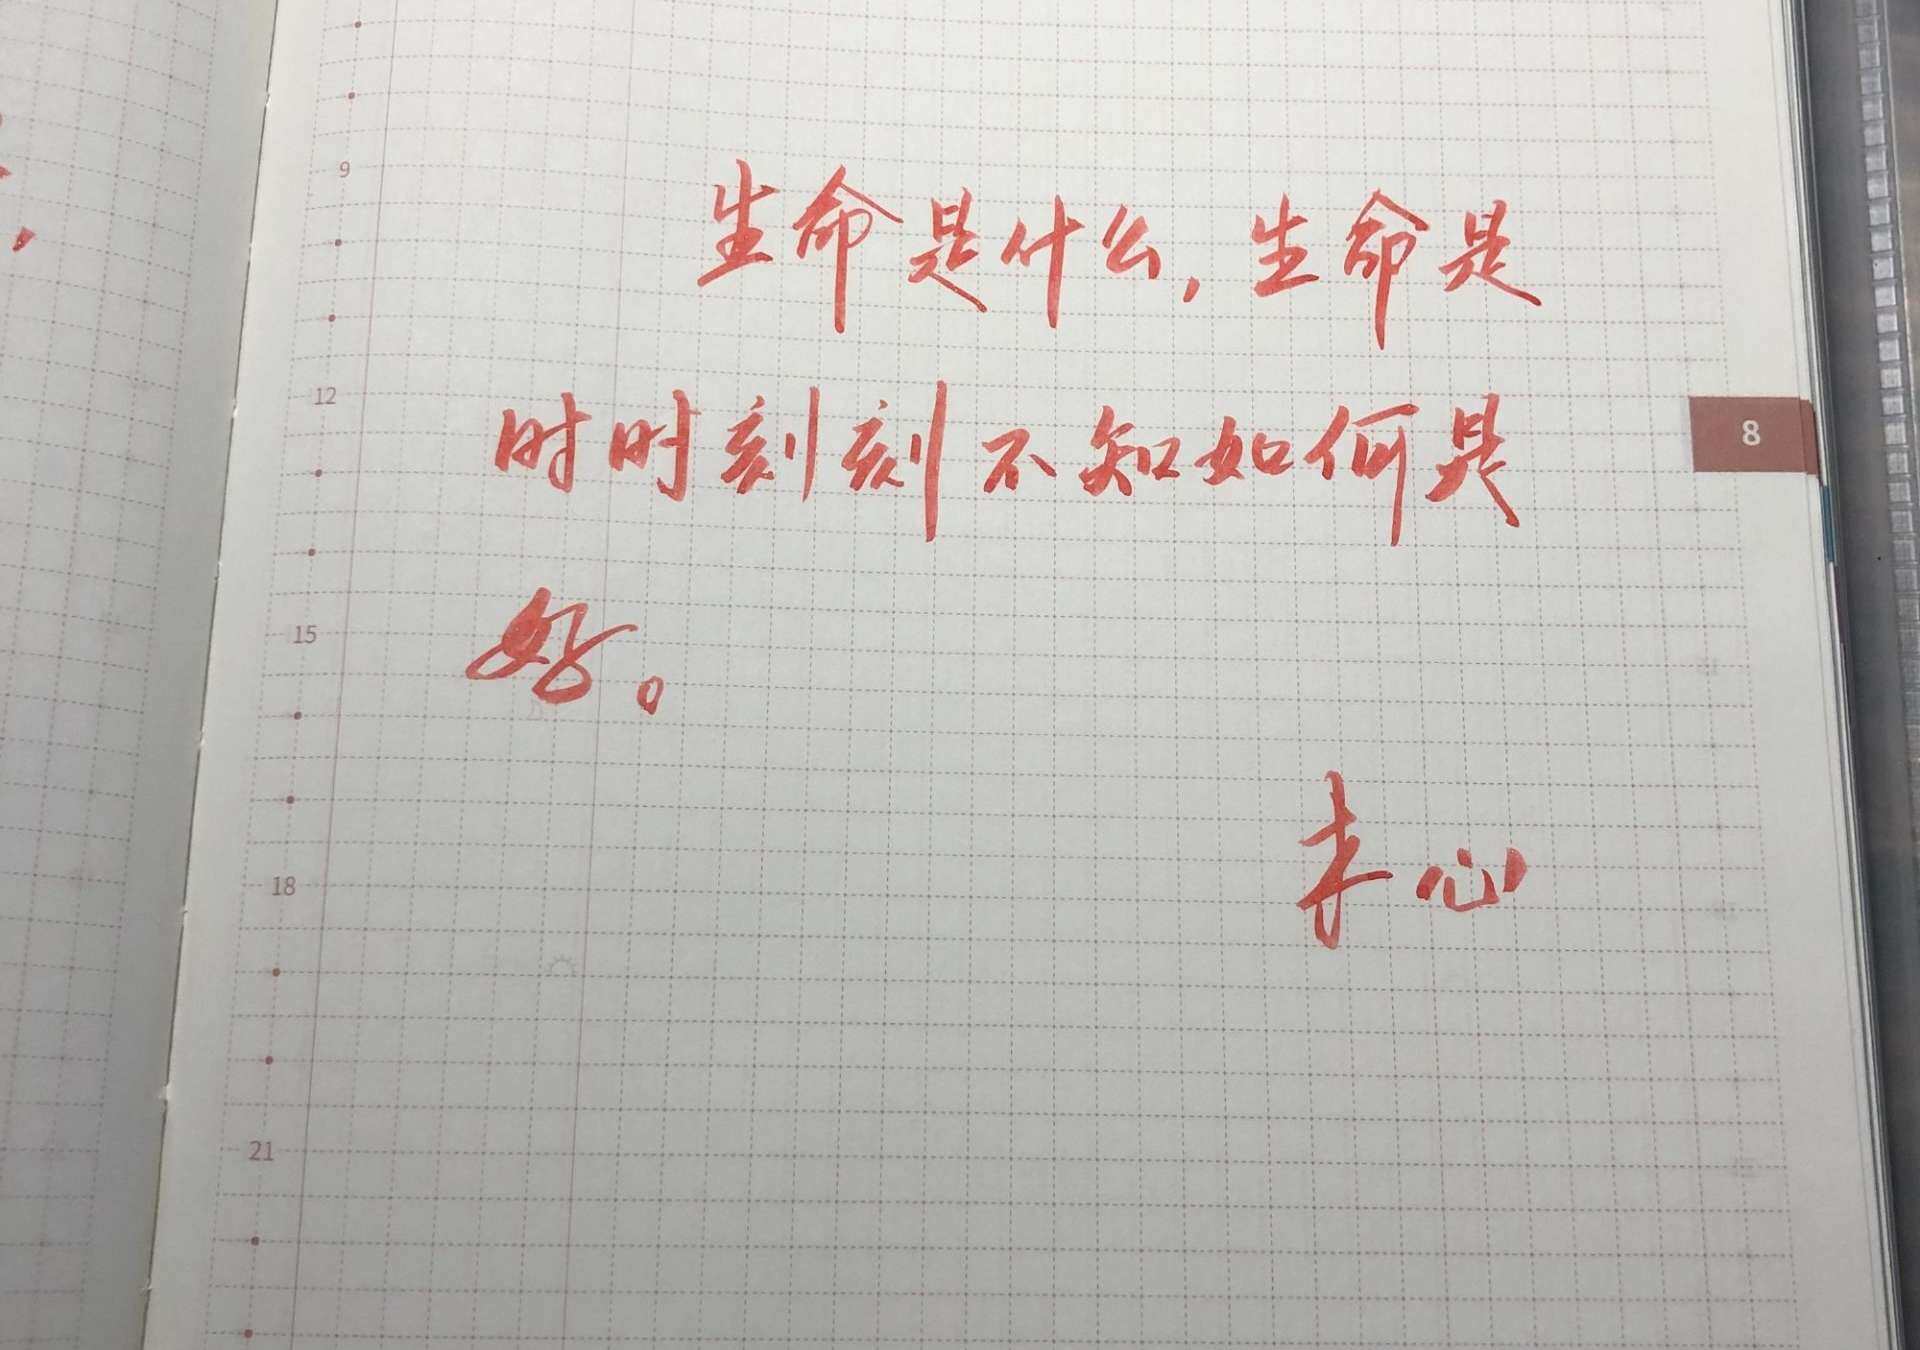 9
生命是什么,生命是
12
时时刻刻不知如何是
8
好。
15
木心
18
21